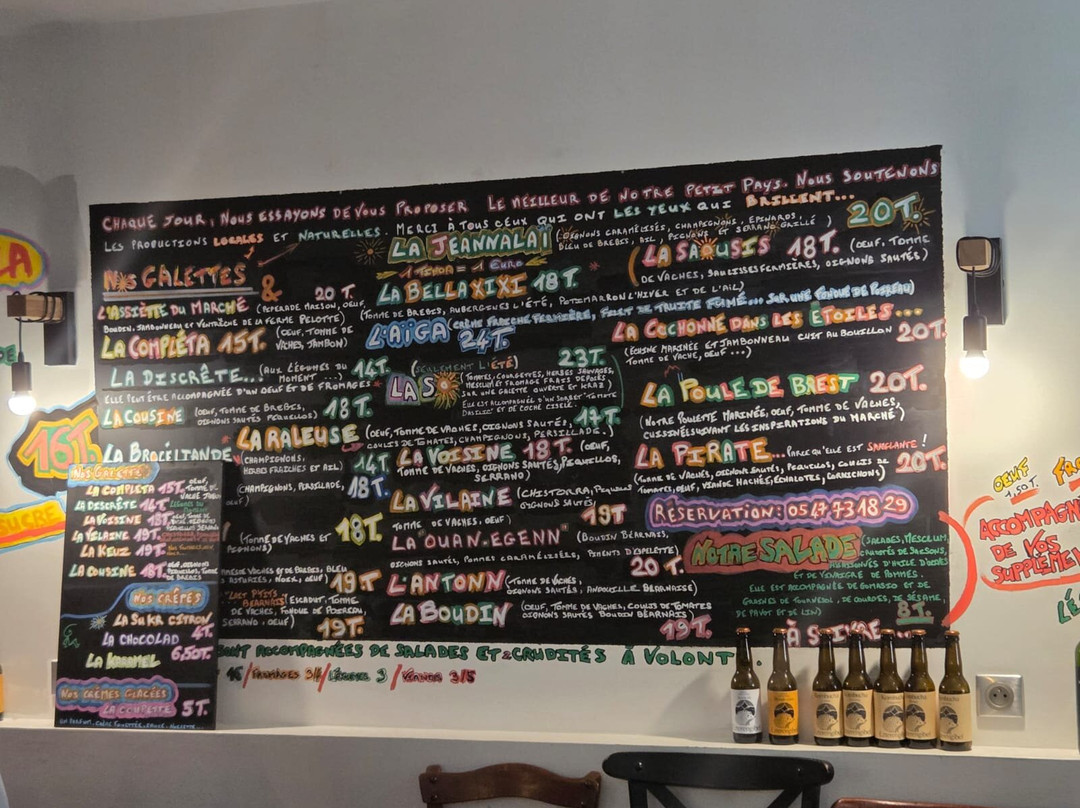 CHAQUE JOUR, NOUS ESSAYONS DE VOUS PROPOSER LE MEILLEUR DE NOTRE PETIT PAYS. NOUS SOUTENONS
LES PRODUCTIONS LOCALES ET NATURELLES. MERCI À TOUS CEUX QUI ONT LES YEUX QUI BRILLENT...
NOS GALETTES &
L'ASSIETTE DU MARCHÉ 20T.
BOUDIN, JAMBONNEAU ET VENTRÈCHE DE LA FERME PELOTTE)
LA COMPLÈTA 15T. (OEUF, TOMME DE
VACHES, JAMBON)
LA DISCRÊTE... (AUX LÉGUMES DU
MOMENT 14T.
ELLE PEUT ÊTRE ACCOMPAGNÉE D'UN OEUF ET DE FROMAGES
LA COUSINE (OEUF, TOMME DE BREBIS,
OIGNONS SAUTÉS PEQUILLOS) 18T.
LA BROCÉLTANDE
(CHAMPIGNONS,
HERBES FRAÎCHES ET AIL) 14T.
(CHAMPIGNONS, PERSILLADE,
18T.
(TOMME DE VACHES ET
18T.
19T
19T.
LA JEANNALAI (OIGNONS CARAMÉLISÉS, CHAMPIGNONS, EPINARDS,
BLEU DE BREBIS, AIL, PIGNONS ET SERRANO GRILLÉ ) 20T.
1 TCHOA = 1 EURO
LA BELLA XIXI 18T.
(TOMME DE BREBIS, AUBERGINES L'ÉTÉ, POTIMARRON L'HIVER ET DE L'AIL)
L'AÏGA (CRÈME FRAÎCHE FERMIÈRE, FILET DE TRUITE FUMÉ... SUR UNE FONDUE DE POIREAU)
24T.
(SEULEMENT L'ÉTÉ) 23T.
LA SO
(TOMATES, COURGETTES, HERBES SAUVAGES,
MESCLUN ET FROMAGE FRAIS DÉPOSÉS
SUR UNE GALETTE OUVERTE ET KRAZ)
ELLE EST ACCOMPAGNÉE D'UN SORBET TOMATE
LA RALEUSE (OEUF, TOMME DE VACHES, OIGNONS SAUTÉS,
COULIS DE TOMATES, CHAMPIGNONS, PERSILLADE.) 17T.
LA VOISINE 18T. (OEUF,
TOMME DE VACHES, OIGNONS SAUTÉS, PEQUILLOS,
SERRANO)
LA VILAINE (CHISTORRA, PEQUILLOS
OIGNONS SAUTÉS,
TOMME DE VACHES, OEUF) 19T
LA OUAN-EGENN (BOUDIN BÉARNAIS,
OIGNONS SAUTÉS, POMMES CARAMÉLISÉES, PIMENTS D'ESPELETTE)
20T.
L'ANTONN (TOMME DE VACHES,
OIGNONS SAUTÉS, ANDOUILLE BÉARNAISE)
LA BOUDIN (OEUF, TOMME DE VACHES, COULIS DE TOMATES
OIGNONS SAUTÉS BOUDIN BÉARNAIS)
19T.
LA SAUSIS 18T. (OEUF, TOMME
DE VACHES, SAUCISSES FERMIÈRES, OIGNONS SAUTÉS)
LA COCHONNE DANS LES ÉTOILES...
(ÉCHINE MARINÉE ET JAMBONNEAU CUIT AU BOUILLON
TOMME DE VACHE, OEUF...) 20T.
LA POULE DE BREST 20T.
(NOTRE POULETTE MARINÉE, OEUF, TOMME DE VACHES,
CUISSINÉ SUIVANT LES INSPIRATIONS DU MARCHÉ)
LA PIRATE... PARCE QU'ELLE EST SANGLANTE!
(TOMME DE VACHES, OIGNONS SAUTÉS, PEQUILLOS, COULIS DE
TOMATES, OEUF, VIANDE HACHÉE, ÉCHALOTES, CORNICHONS) 20T.
RÉSERVATION: 05 47 73 18 29
NOTRE SALADE (SALADES, MESCLUM,
CRUDITÉS DE SAISONS,
ET DE VINAIGRE DE POMMES.
ELLE EST ACCOMPAGNÉE DE GOMASIO ET DE
GRAINES DE TOURNESOL, DE COURGES, DE SÉSAME,
DE PAVOT ET DE LIN) 8T.
À SUIVRE...
SONT ACCOMPAGNÉES DE SALADES ET CRUDITÉS À VOLONT
FROMAGES 3/4 / LÉGUMES 3 / VIANDE 3/5
NOS GALETTES
LA COMPLÈTA 15T.
LA DISCRÈTE 14T.
LA VOISINE 18T.
LA VILAINE 19T.
LA KEUZ 19T.
LA COUSINE 18T.
NOS CRÊPES
LA SUKR CITRON
4T.
LA CHOCOLAD
LA KARAMEL 6,50T.
NOS CRÈMES GLACÉES
LA COUPETTE 5T.
16T.
SUCRE
OEUF
1,50T.
ACCOMPAGN
DE VOS
SUPPLÉME